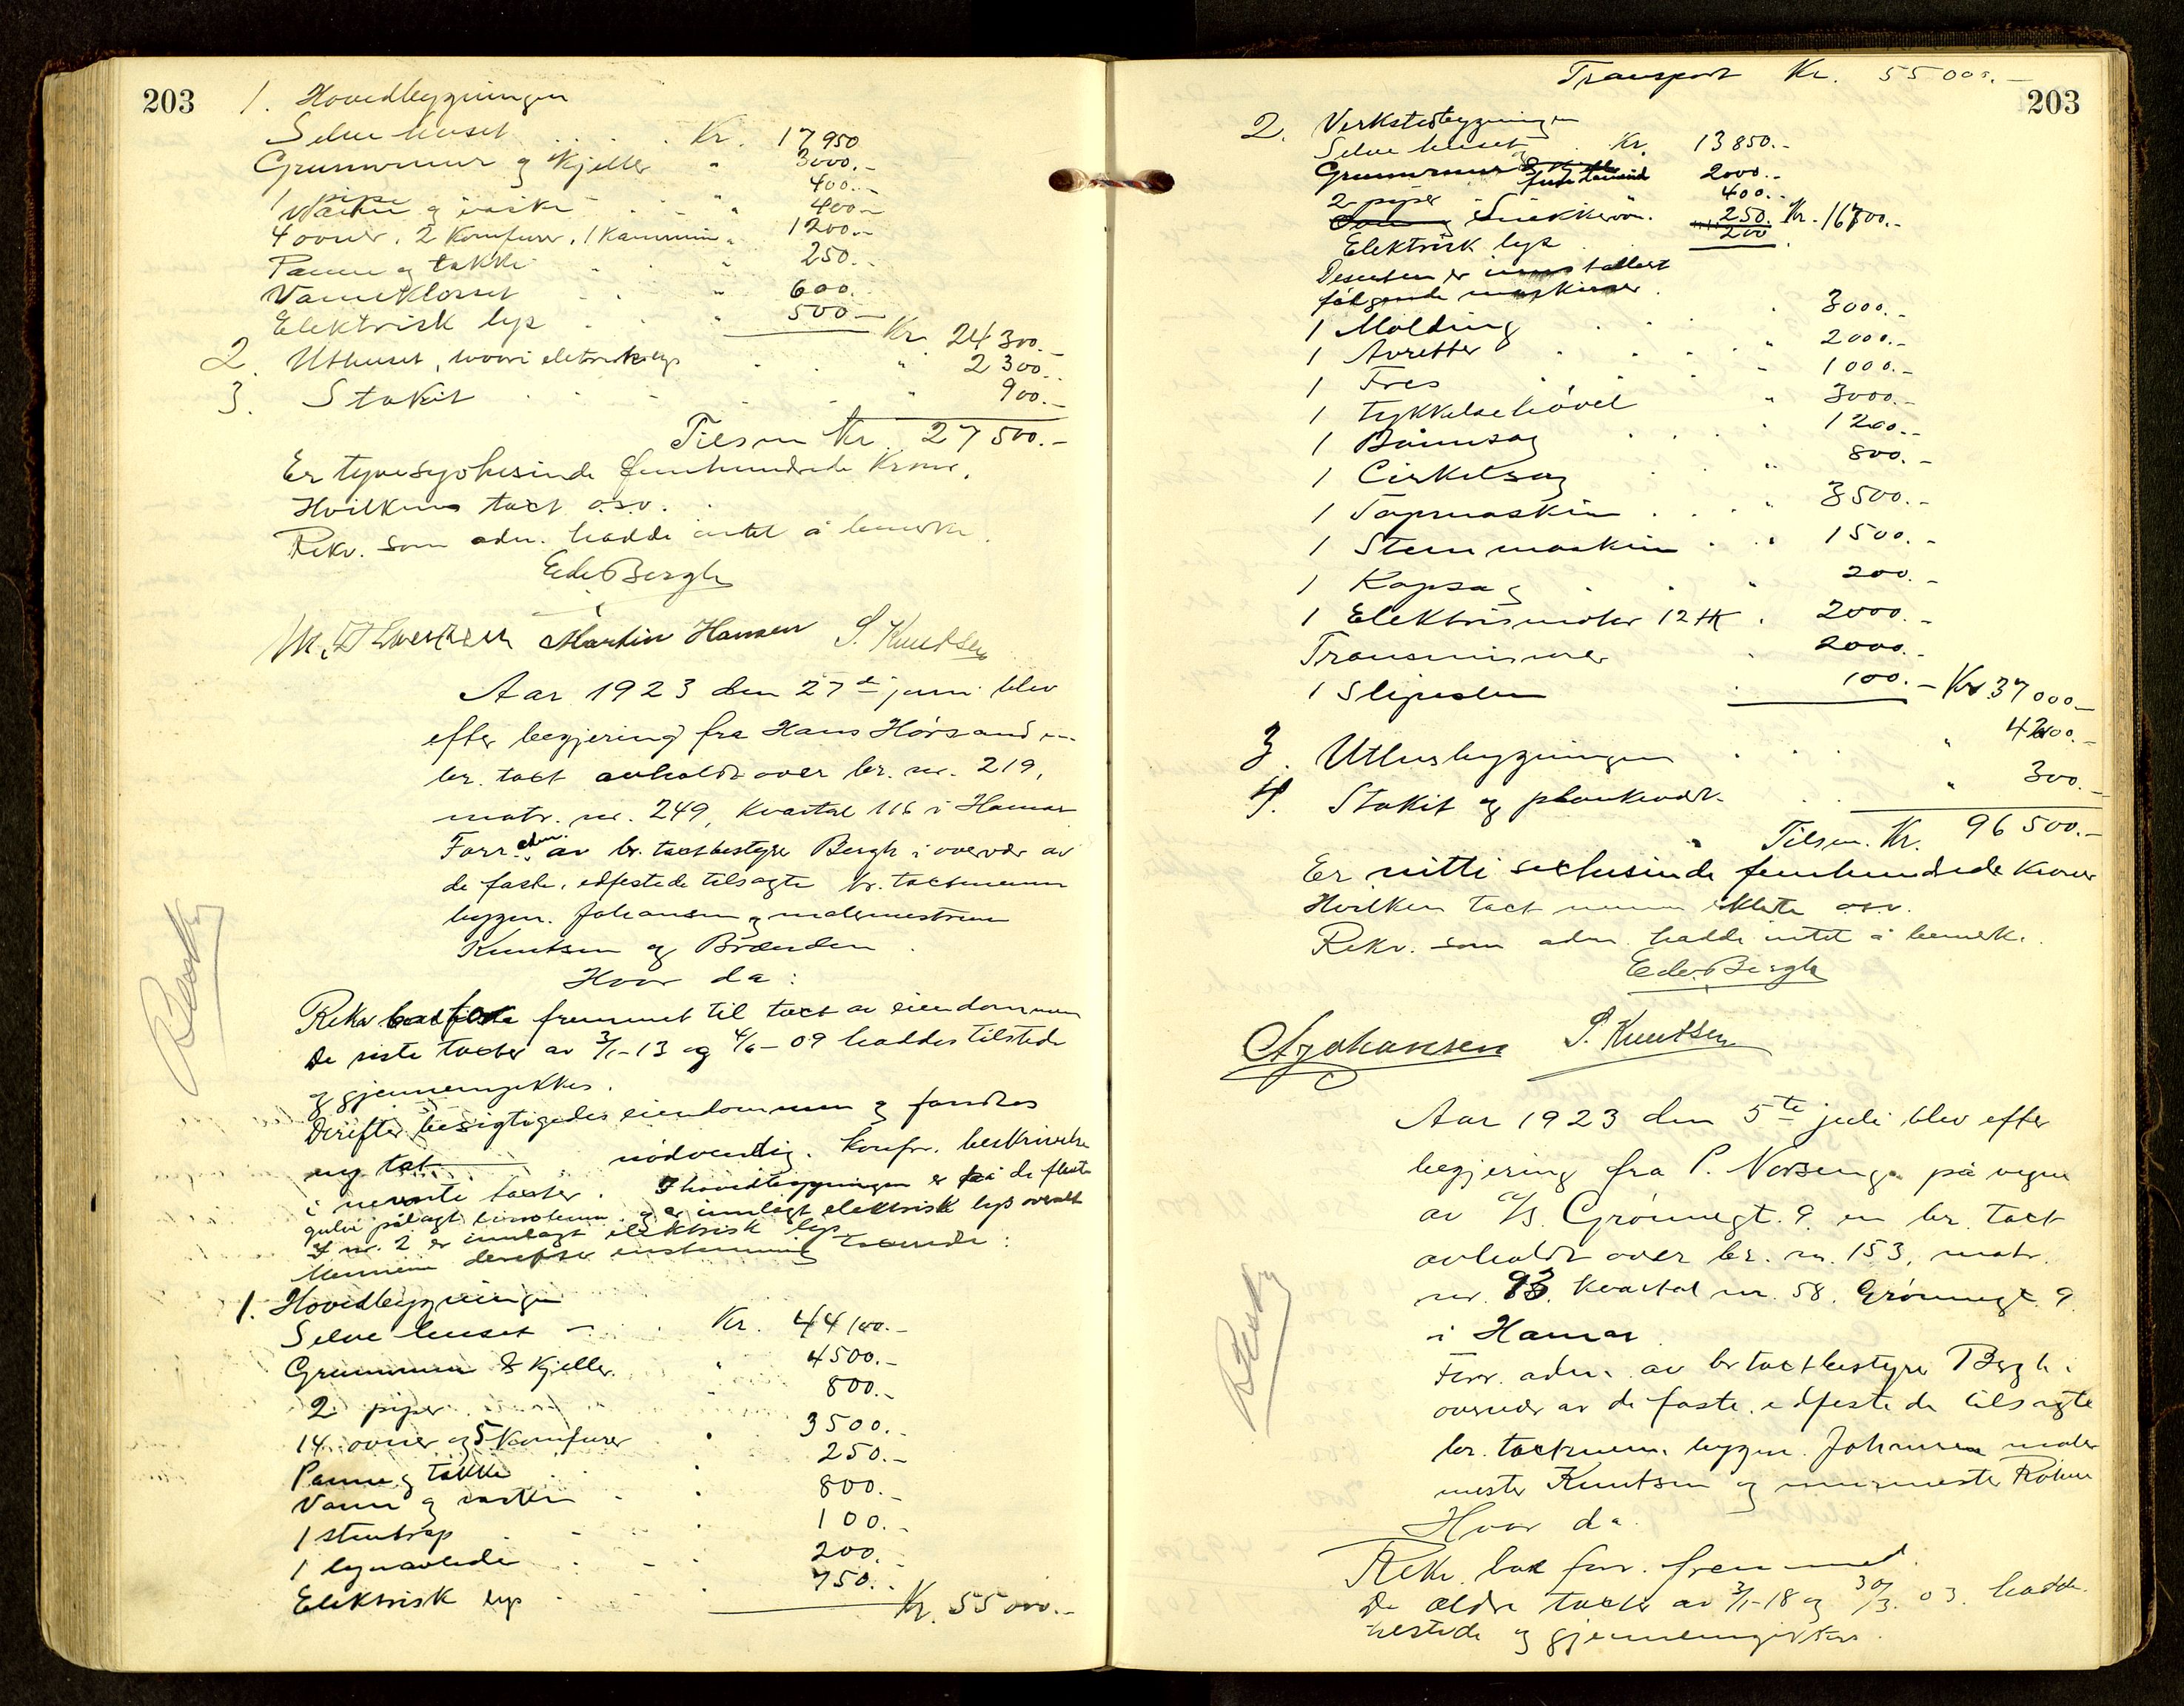 203
1. Hovedbygningen
Selve huset . . . . Kr. 17950
Grunnmur og kjeller " 3000.-
1 pipe " 400.-
Vann og vaske " 400.-
4 ovner, 2 Komfurer, 1 Kammin " 1200.-
Panne og takke " 250.-
Vannklosset " 600.-
Elektrisk lys . . " 500.- Kr. 24300.-
2. Uthuset, hvori elektrisk lys . . " 2300.-
3. Stakit . . . " 900.-
Tilsm Kr. 27500.-
Er tyvesyvtusinde femhundrede Kroner.
Hvilken taxt o.s.v.
Rekv. som adm. hadde intet å bemerke.
Edv Bergh
Martin Hansen S. Knutsen
Aar 1923 den 27de juni blev
efter begjering fra Hans Hörsand en
br. taxt avholdt over br. nr. 219,
matr. nr. 249, Kvartal 116 i Hamar
Forr. adm. av br. taxtbestyrer Bergh i overvær av
de faste, edfestede tilsagte br. taxtmenn
byggm. Johansen og malermestrene
Knutsen og Brænden.
Hvor da:
Rekv. fremmet til taxt av eiendommen
De siste taxter av 3/1-13 og 4/6-09 haddes tilstede
og gjennemgikkes.
Derefter besigtigedes eiendommen og fandtes
ny tat nödvendig. Konfr. beskrivelse
i nevnte taxter. I hovedbygningen er på de fleste
gulv pålagt linoleum og er innlagt elektrisk lys overalt
I nr. 2 er innlagt elektrisk lys
Mennene derefter enstemmig taxerede:
1. Hovedbygningen
Selve huset - . . Kr. 44100.-
Grunnmur & Kjeller " 4500.-
2 piper " 800.-
14 ovner og 5 Komfurer " 3500.-
Panne og takke " 250.-
Vann og vaske " 800.-
1 stentrap " 100.-
1 lynavleder " 200.-
Elektrisk lys " 750.- Kr. 55000.-
203
Transport Kr. 55000.-
2. Verkstedbygningen
Selve huset . Kr. 13850.-
Grunnmur og 2000.-
2 piper 400.-
Snekkerovn. 250. Kr. 16700.-
Elektrisk lys 200
Desuten er innstallert
følgende maskiner.
1 Molding . . . 3000.-
1 Avretter . . . " 2000.-
1 Fres . . . 1000.-
1 Tykkelsehövel " 3000.-
1 Båndsag . . . 1200.-
1 Cirkelsag . . " 800.-
1 Tapmaskin . . . " 3500.-
1 Stemmaskin . . " 1500.-
1 Kapsag . . " 200.-
1 Elektrismotor 12 HK . 2000.-
Transmisioner . 2000.-
1 Slipesten . 100.- Kr 37000.-
3. Uthusbygningen . . . "
4. Stakit og plankeverk . . " 300.-
Tilsm. Kr. 96500.-
Er nitti sextusinde femhundrede Kroner
Hvilken taxt mennene osv.
Rekv. som adm. hadde intet å bemerke.
Edv. Bergh
A Johansen S. Knutsen
Aar 1923 den 5te juli blev efter
begjering fra P. Norseng på vegne
av A/S Grønnegt. 9 en br. taxt
avholdt over br. nr. 153, matr.
nr. 93. Kvartal nr. 58. Grönnegt. 9
i Hamar
Forr. adm. av br taxtbestyrer Bergh i
overvær av de faste, edfestede tilsagte
br. taxtmenn. byggm. Johansen maler
mester Knutsen og murmester
Hvor da.
Rekv.
De ældre taxter av 3/1-18 og 30/3. 03. hadde
tilstede og gjennemgikkes.